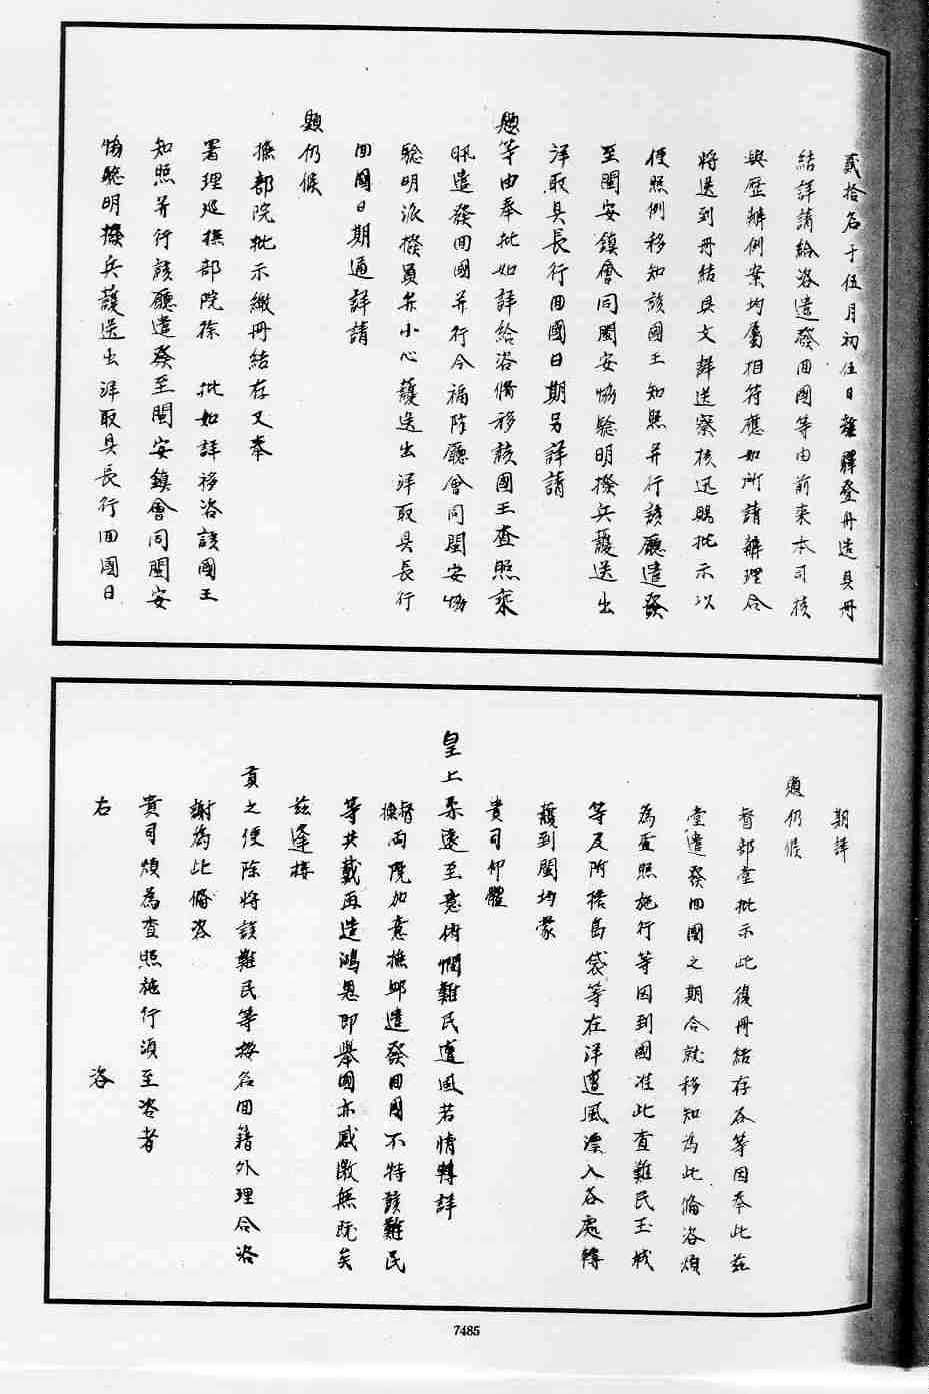 貳拾名于伍月初伍日離驛登舟造具冊
結詳請給咨遣發回國等由前來本司核
與歷辦例案均屬相符應如所請辦理合
將送到冊結具文詳送察核迅賜批示以
便照例移知該國王知照并行該廳遣發
至閩安鎮會同閩安協驗明撥兵護送出
洋取具長行回國日期另詳請
題等由奉批如詳給咨備移該國王查照乘
汛遣發回國并行令福防廳會同閩安協
驗明派撥員弁小心護送出洋取具長行
回國日期通詳請
題仍候
撫部院批示繳冊結存又奉
署理巡撫部院徐 批如詳移咨該國王
知照并行該廳遣發至閩安鎮會同閩安
協驗明撥兵護送出洋取具長行回國日
期詳
題仍候
督部堂批示此復冊結存各等因奉此茲
當遣發回國之期合就移知為此備咨煩
為查照施行等因到國准此查難民玉城
等及所搭島袋等在洋遭風漂入各處轉
護到閩均蒙
貴司仰體
皇上柔遠至意俯憫難民遭風苦情轉詳
督撫兩院加意撫卹遣發回國不特該難民
等共戴再造鴻恩即舉國亦感激無既矣
茲逢接
貢之便除將該難民等按名回籍外理合咨
謝為此備咨
貴司煩為查照施行須至咨者
右 咨
7485